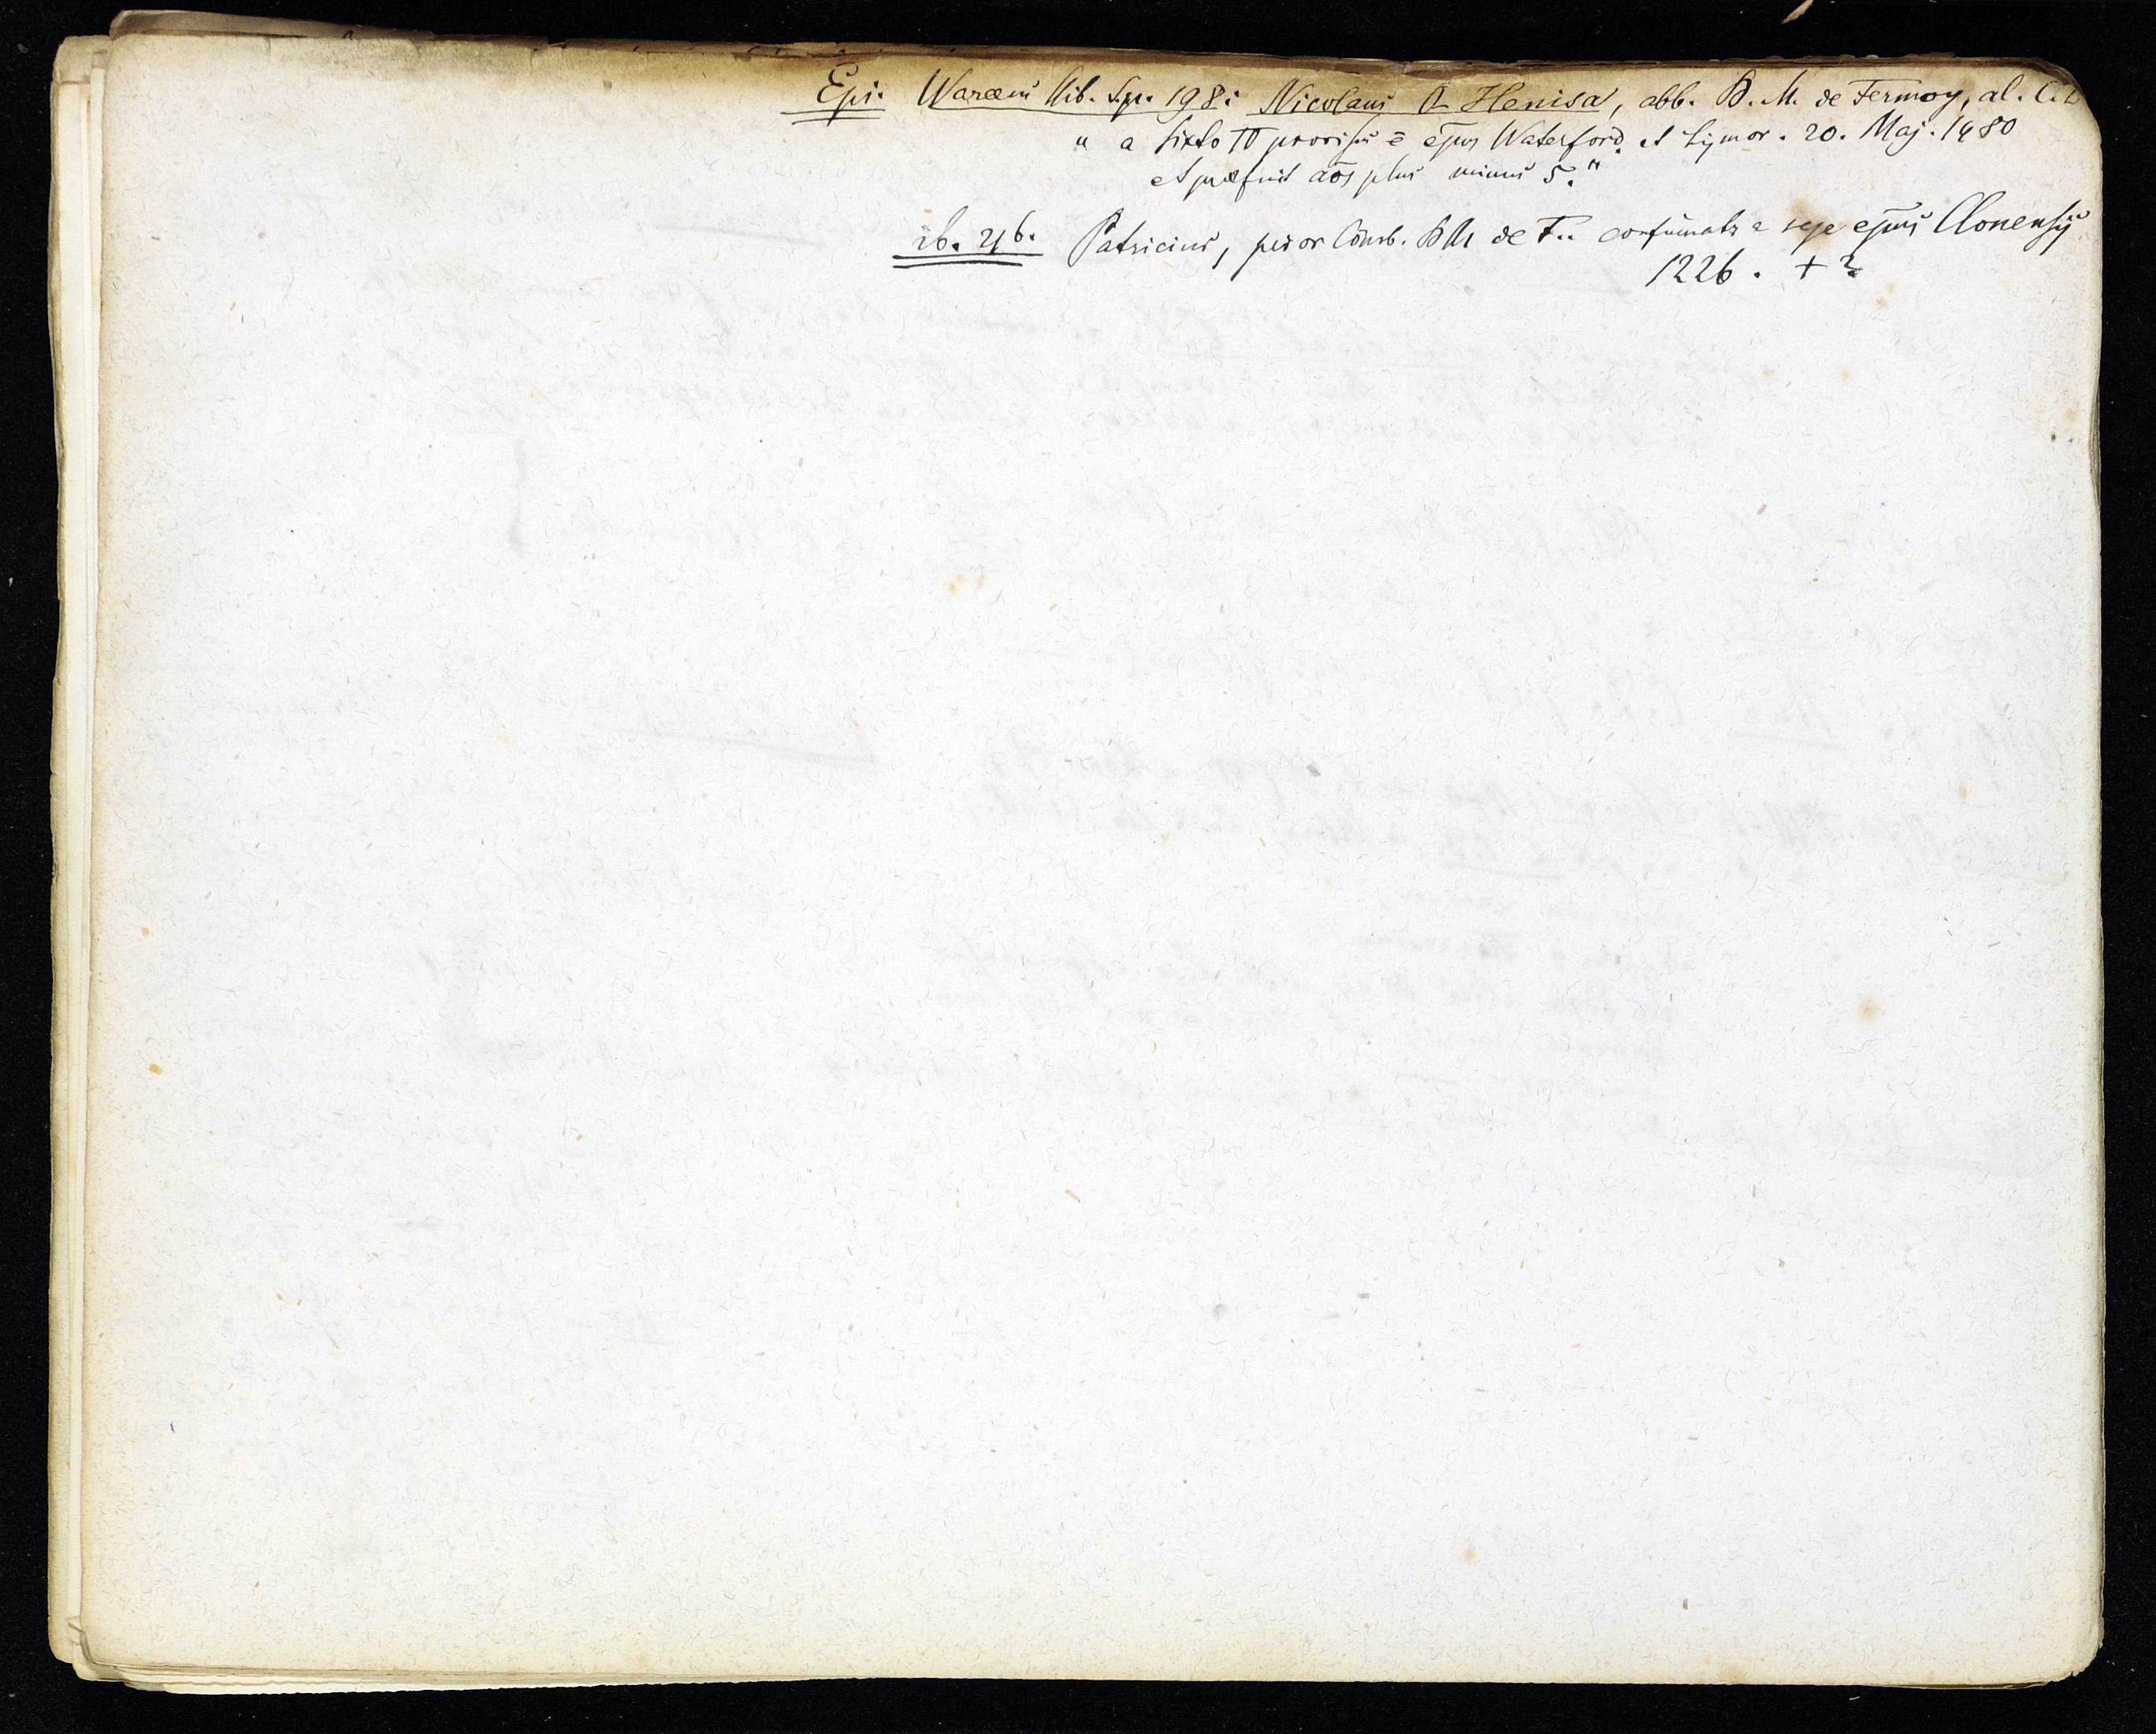 Epi. Waraeus Hib. S. p. 198: Nicolaus O Henisa, abb. B. M. de Fermoy, al. C. D
" a Sixto IV provisus ē ep̄us Waterford. et Lismor. 20. Maj. 1480
et praefuit ān̄os plus minus 5."
ib. 216. Patricius, prior Cōmb. BM de F.. confirmatr a rege ep̄us Clonensis
1226. + ?